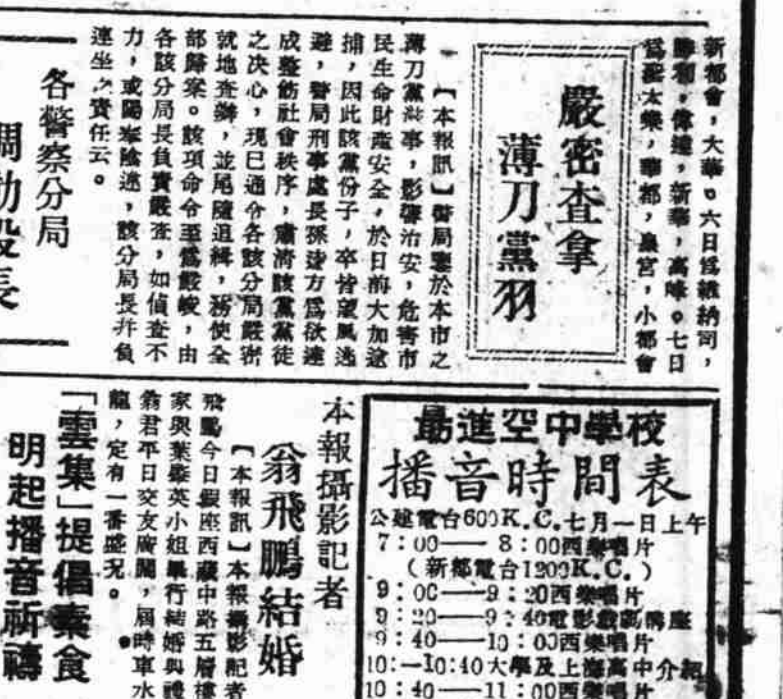 新都會，大華。六日為維納司，
勝利，偉達，新華，高峰。七日
為聖太樂，華都，皇宮，小都會
嚴密查拿
薄刀黨羽
【本報訊】警局鑒於本市之
薄刀黨滋事，影響治安，危害市
民生命財產安全，於日前大加逮
捕，因此該黨份子，卒皆望風逃
避，警局刑事處長孫達方為欲達
成整飭社會秩序，肅清該黨黨徒
之决心，現已通令各該分局嚴密
就地查辦，並尾隨追緝，務使全
部歸案。該項命令至為嚴峻，由
各該分局長負責嚴查，如偵查不
力，或陽奉陰違，該分局長并負
連坐之責任云。
各警察分局
調動股長
最進空中學校
播音時間表
公建電台600K.C.七月一日上午
7：00——8：00西樂唱片
（新都電台1200K.C.）
9：00——9：20西樂唱片
9：20——9：40電影戲劇講座
9：40——10：00西樂唱片
10：—10：40大學及上海高中介紹
10：40——11：00西樂唱片
本報攝影記者
翁飛鵬結婚
【本報訊】本報攝影記者
飛鵬今日假座西藏中路五層樓
家與葉英小姐舉行結婚典禮
翁君平日交友廣闊，屆時車水
龍，定有一番盛况。
「雲集」提倡素食
明起播音祈禱